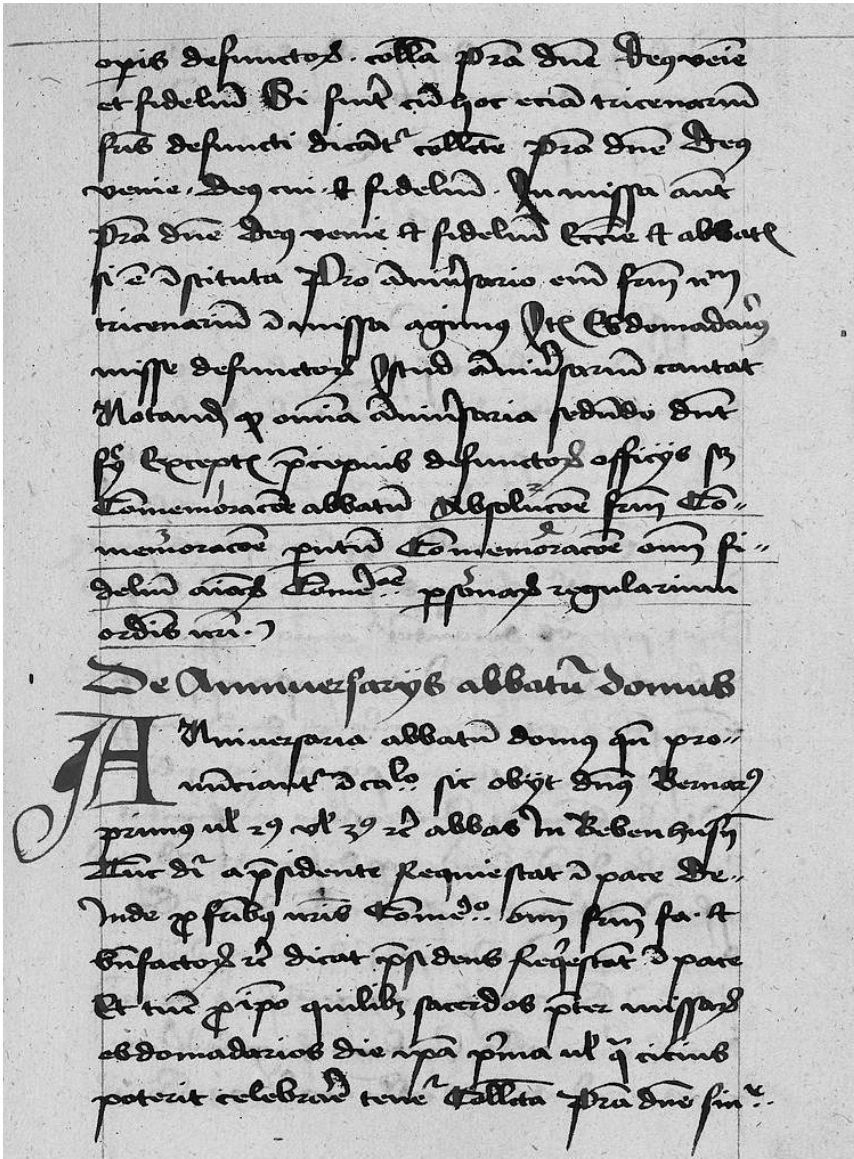 opis defunctoꝝ. coll̄a p̄ra dn̄e Deꝰ venie
et fideliū Si sint cū hoc eciā tricenariū
fr̄is defuncti dicāt᷑ coll̄cte p̄ra dn̄e Deꝰ
venie. Deꝰ cui. et fideliū. In missa aūt
p̄ra dn̄e Deꝰ venie et fideliū Eccīe et abbat
si ē īstituta Pro āniūsario eīm fr̄m
tricenariū ī missa agimꝰ Itē Ebdomadariꝰ
misse defunctoꝝ Istud āniūsariū cantat
Notand ꝙ omīa āniūsaria dn̄t
Except̄ p̄cipuis defunctoꝝ officijs sꝫ
Cōmemoracōe abbatū Absolucōe fr̄m Cō-
memoracōe pn̄tū Cōmemoracōe om̄ fi-
deliū aīaꝝ Cōme. ꝑsonaꝝ regularium
ordīs nr̄i.
De Anniuersarijs abbatū domus
ANniuersaria abbatū domꝰ qn̄ pro-
nūciant᷑ ī calo. sic obijt dn̄s Bernarꝰ
primꝰ ul̄ 2ꝰ vl̄ 3ꝰ rc̄ abbas in Bebenhusn̄
Tūc dr̄ a p̄sidente Requiescat ī pace De-
inde ꝓ fr̄ibꝰ nr̄is Cōme. om̄ fr̄m fa. et
bn̄factoꝝ rc̄ dicat p̄sidens Reqͥescāt ī pace
Et tūc ꝓ ip̄o quilibꝫ sacerdos p̄ter missaꝝ
ebdomadarios die ip̄a p̄ma ul̄ qͣ cicius
poterit celebrare tene᷑ Coll̄ctā p̄ra dn̄e